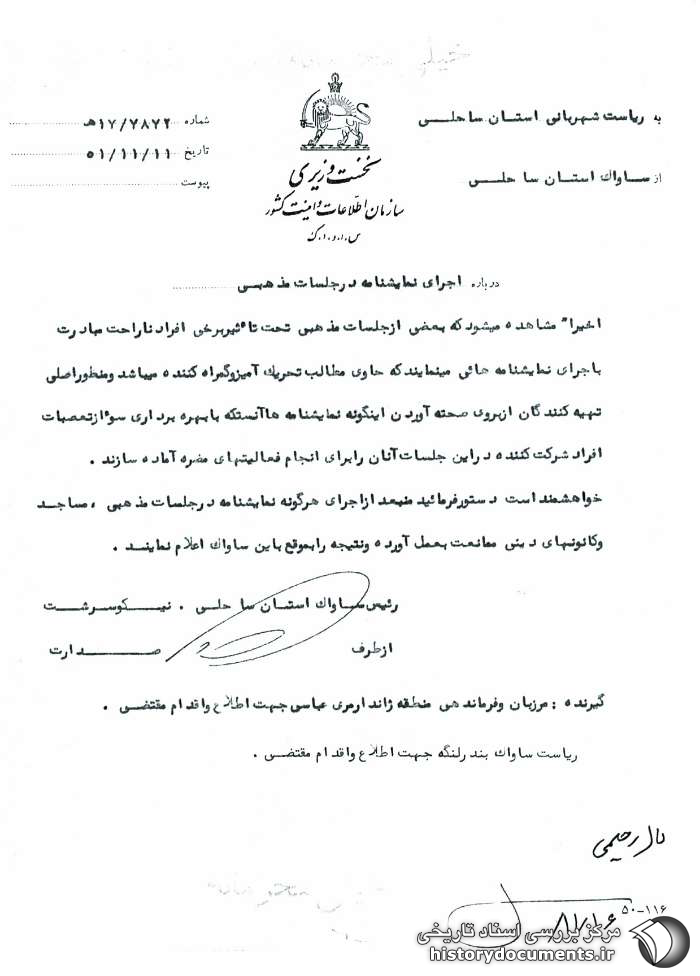 به ریاست شهربانی استان ساحلی
از ساواك استان ساحلی
نخست وزیری
سازمان اطلاعات و امنیت کشور
س.ا.و.ا.ک
شماره ۱۷/۷۸۷۲هـ
تاریخ ۵۱/۱۱/۱۱
پیوست
درباره اجرای نمایشنامه درجلسات مذهبی
اخیرا" مشاهده میشود که بعضی ازجلسات مذهبی تحت تاثیربرخی افراد ناراحت مبادرت
باجرای نمایشنامه هائی مینمایند که حاوی مطالب تحریك آمیزوگمراه کننده میباشد ومنظوراصلی
تهیه کنندگان ازبروی صحنه آوردن اینگونه نمایشنامه هاآنستکه بابهره برداری سوء ازتعصبات
افراد شرکت کننده دراین جلسات آنان رابرای انجام فعالیتهای مضره آماده سازند .
خواهشمند است دستورفرمائید منبعد ازاجرای هرگونه نمایشنامه درجلسات مذهبی ، مساجد
وکانونهای دینی ممانعت بعمل آورده ونتیجه رابموقع باین ساواك اعلام نمایند .
رئیس ساواك استان ساحلی . نیکوسرشت
ازطرف صدارت
گیرنده : مرزبان وفرماندهی منطقه ژاندارمری عباسی جهت اطلاع واقدام مقتضی .
ریاست ساواك بندرلنگه جهت اطلاع واقدام مقتضی .
رحیمی
۵۰-۱۱۶
مرکز بررسی اسناد تاریخی
historydocuments.ir